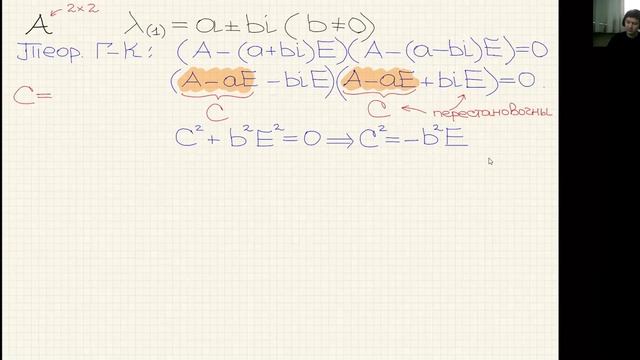 A 2×2 λ₍₁₎ = a ± bi (b ≠ 0)
Теор. Г-К: (A - (a+bi)E)(A - (a-bi)E) = 0
(A - aE - biE)(A - aE + biE) = 0.
C C перестановочны
C =
C² + b²E² = 0 ⟹ C² = -b²E